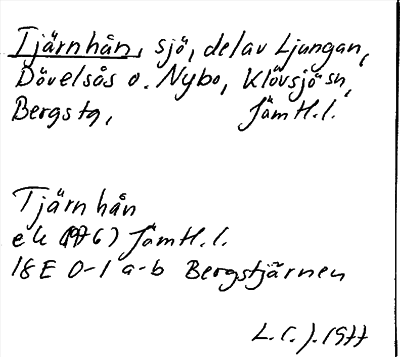 Tjärnhån, sjö, del av Ljungan,
Dövelsås o. Nybo, Klövsjö sn,
Bergs tg, Jämtl.l.
Tjärnhån
ek (1976) Jämtl.l.
18E 0-1 a-b Bergstjärnen
L.C.J. 1977